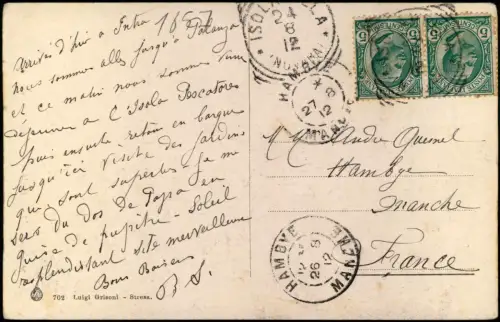 1657
Arrivés d'hier à Intra
nous sommes allés jusqu'à Palanza
et ce matin nous sommes venus
déjeuner à l'Isola Pescatore
puis ensuite retour en barque
jusqu'ici visite des jardins
qui sont superbes je me
sers du dos de Papa en
guise de pupitre - Soleil
resplendissant site merveilleux
Bons Baisers
702 Luigi Grisoni - Stresa.
ISOLA BELLA
24
8
12
(NOVARA)
HAMBYE
27 8
12
MANCHE
HAMBYE
26 8
12
MANCHE
André Quesnel
Hambye
Manche
France